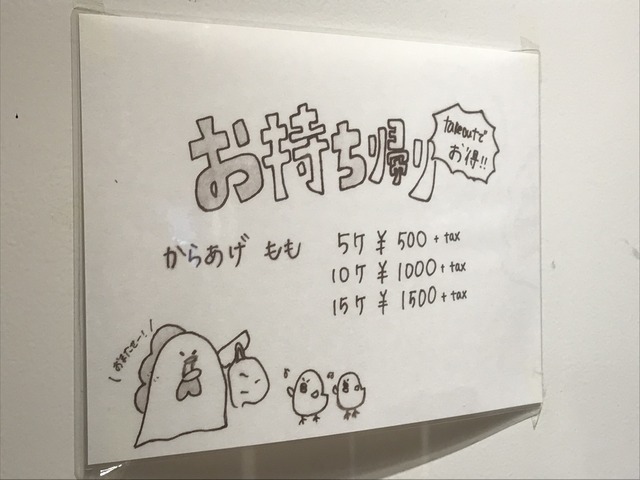 お持ち帰り
takeoutで
お得!!
からあげ もも
5ケ ¥500+tax
10ケ ¥1000+tax
15ケ ¥1500+tax
おまたせー!